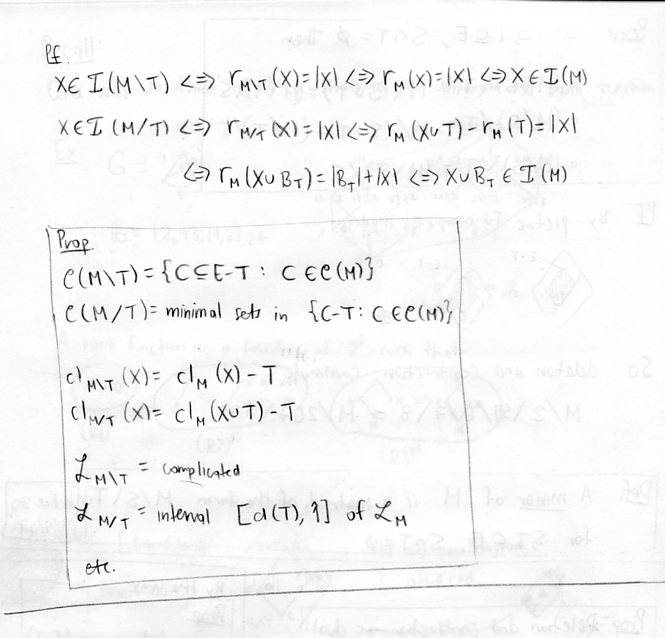 Pf.
X∈ I(M\T) <=> r_{M\T}(X)=|X| <=> r_M(X)=|X| <=> X∈I(M)
X∈I(M/T) <=> r_{M/T}(X)=|X| <=> r_M(X∪T)-r_M(T)=|X|
<=> r_M(X∪B_T)=|B_T|+|X| <=> X∪B_T ∈ I(M)
Prop.
C(M\T)={C⊆E-T : C∈C(M)}
C(M/T)= minimal sets in {C-T: C∈C(M)}
cl_{M\T}(X)= cl_M(X)-T
cl_{M/T}(X)= cl_M(X∪T)-T
L_{M\T} = complicated
L_{M/T} = interval [cl(T), 1̂] of L_M
etc.